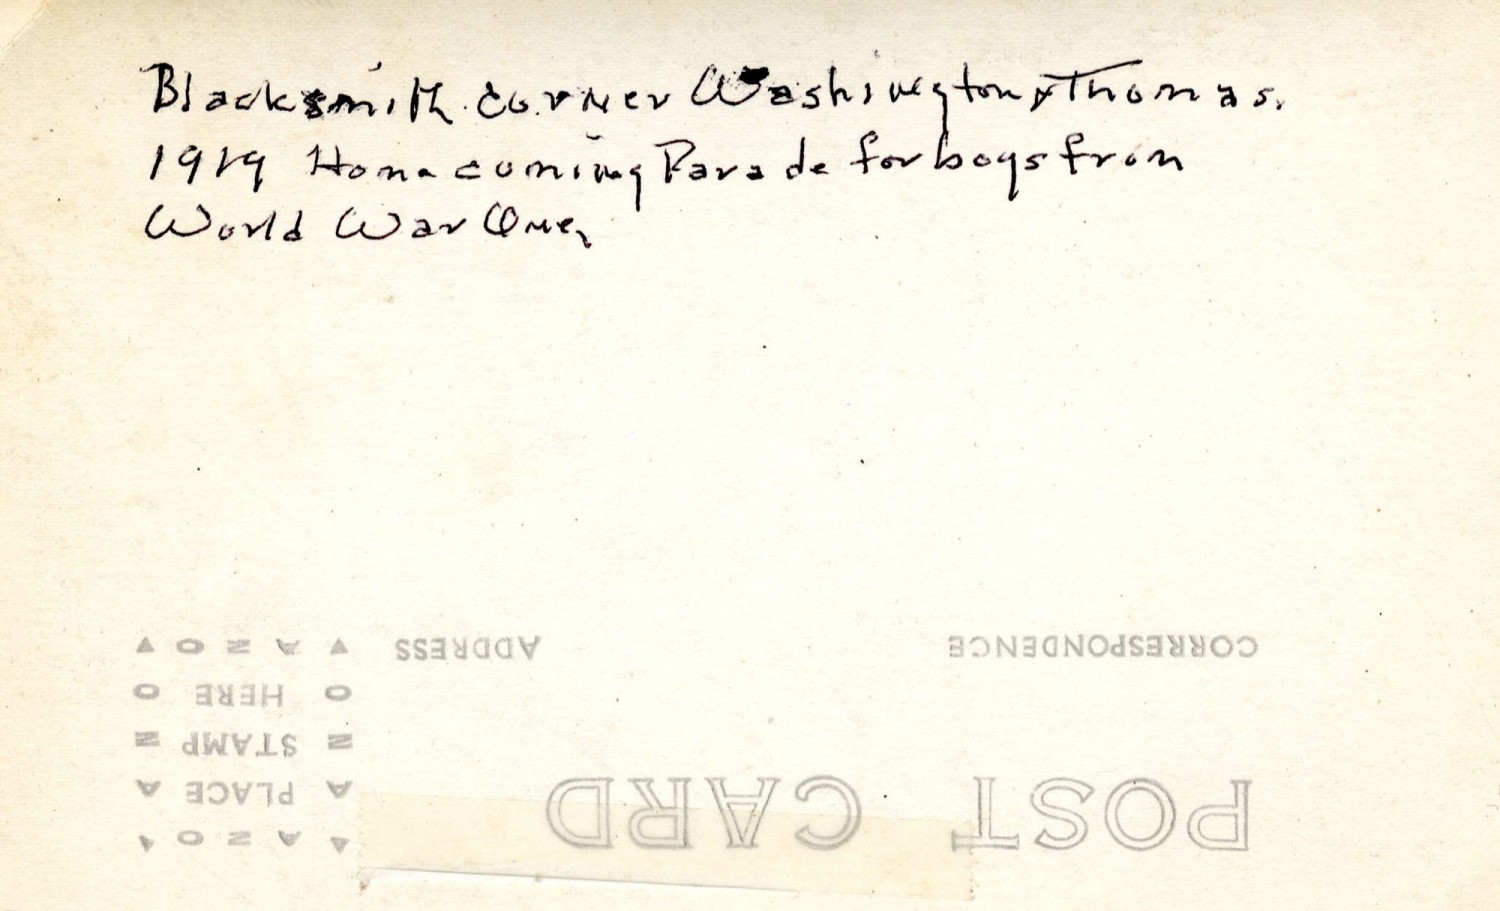 Blacksmith corner Washington & Thomas.
1919 Homecoming Parade for boys from
World War One,
CORRESPONDENCE
ADDRESS
POST CARD
AZO
PLACE
STAMP
HERE
AZO